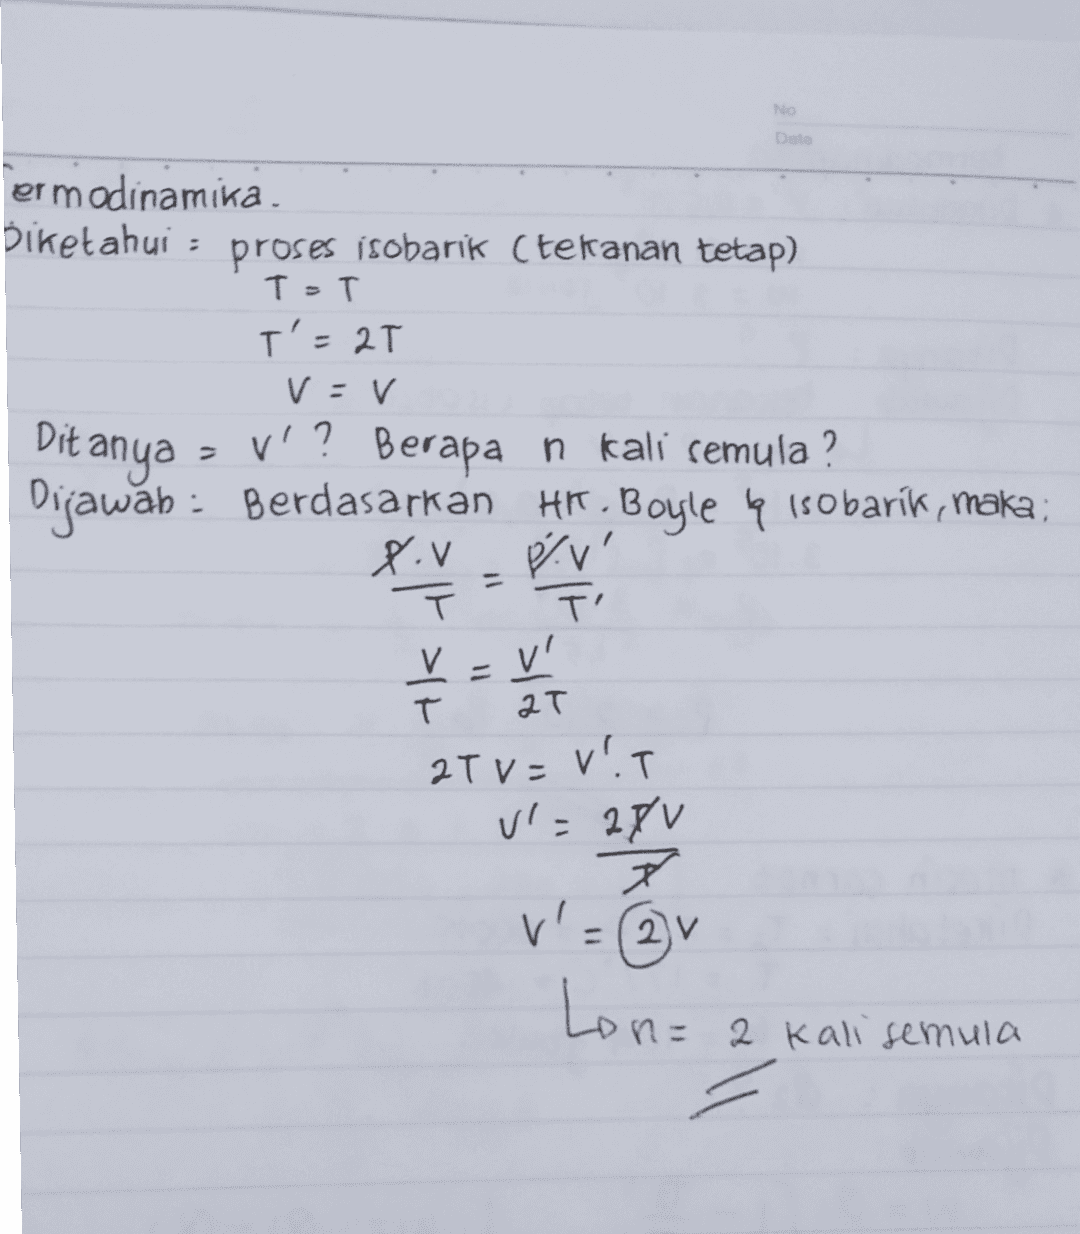 No
Date
ermodinamika.
Diketahui = proses isobarik (tekanan tetap)
T = T
T' = 2T
V = V
Ditanya = V' ? Berapa n kali semula ?
Dijawab : Berdasarkan HK. Boyle & isobarik, maka;
P.V / T = P.V' / T'
V / T = V' / 2T
2TV = V'.T
V' = 2TV / T
V' = 2V
↳ n = 2 kali semula